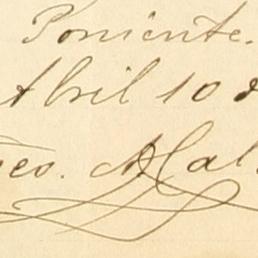 Poniente.
Abril 10 d
eo. A. Cal